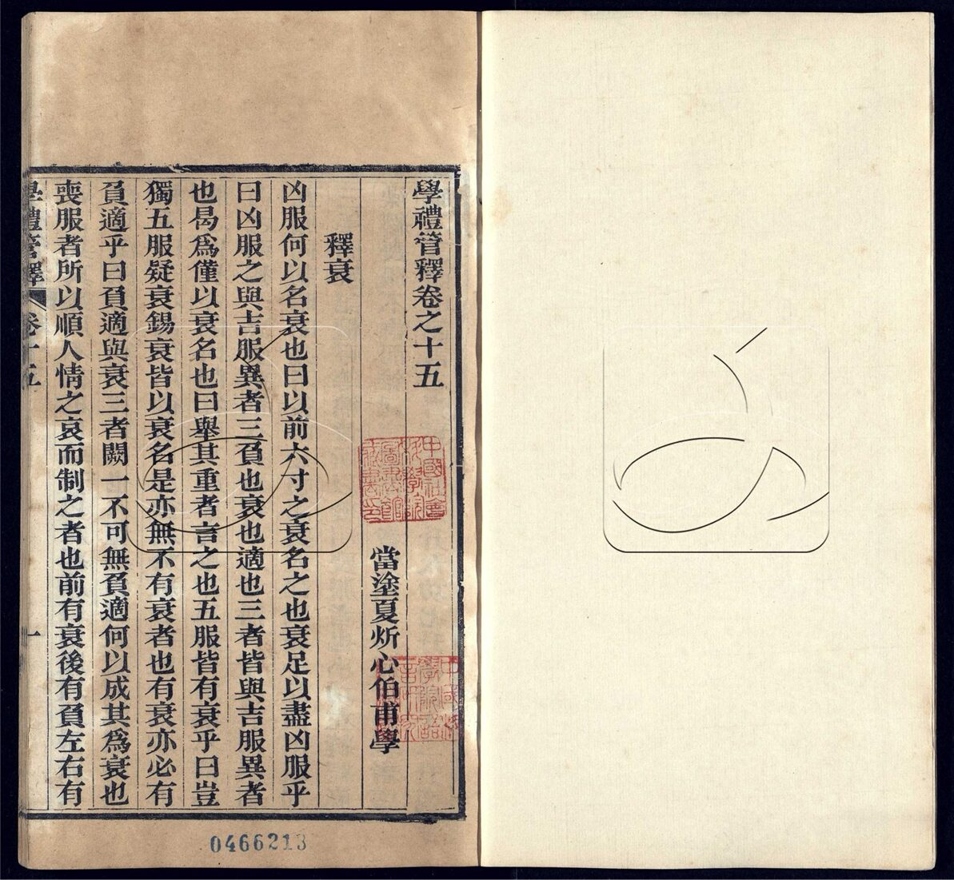 學禮管釋卷之十五
當塗夏炘心伯甫學
釋衰
凶服何以名衰也曰以前六寸之衰名之也衰足以盡凶服乎
曰凶服之與吉服異者三負也衰也適也三者皆與吉服異者
也曷爲僅以衰名也曰舉其重者言之也五服皆有衰乎曰豈
獨五服疑衰錫衰皆以衰名是亦無不有衰者也有衰亦必有
負適乎曰負適與衰三者闕一不可無負適何以成其爲衰也
喪服者所以順人情之哀而制之者也前有衰後有負左右有
學禮管釋 卷十五 一
0466213